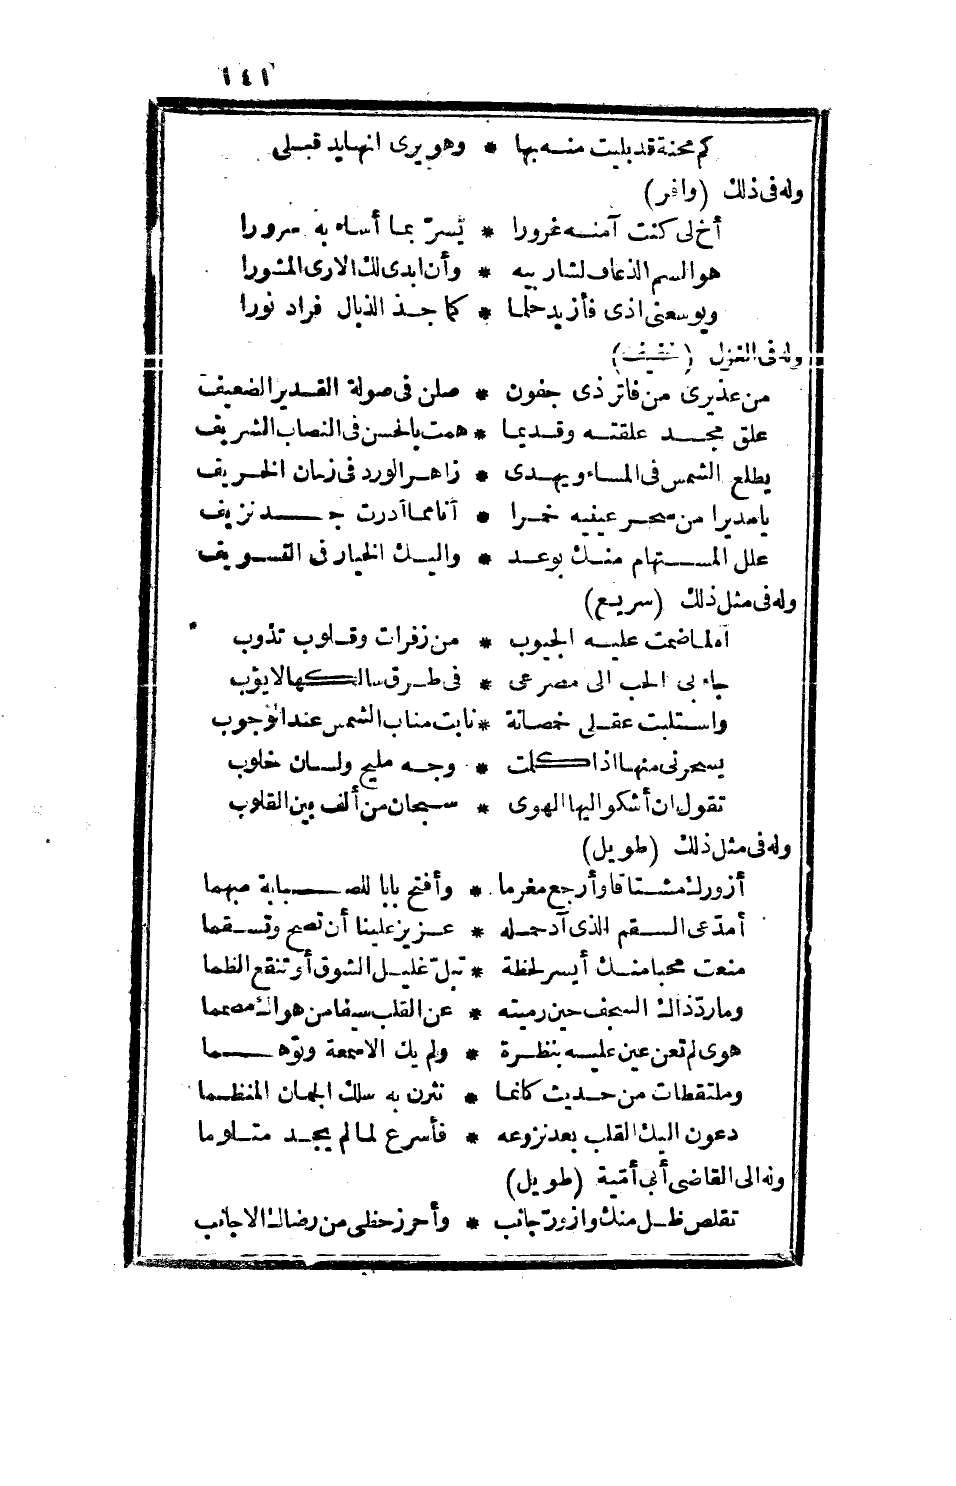 ١٤١
كم محنة قد بليت منه بها * وهو يرى انها يد قبلى
وله فى ذلك (وافر)
أخ لى كنت آمنه غرورا * يسرّ بما أساء به سرورا
هو السم الذعاف لشاربيه * وأن ابدى لك الارى المشورا
ويوسعنى اذى فأزيد حلما * كما جذ الذبال فزاد نورا
وله فى الغزل (خفيف)
من عذيرى من فاتر ذى جفون * صلن فى صولة القدير الضعيف
علق مجد علقته وقديما * همت بالحسن فى النصاب الشريف
يطلع الشمس فى المساء ويهدى * زاهر الورد فى زمان الخريف
يا مديرا من سحر عينيه خمرا * أنا مما أدرت جد نزيف
علل المستهام منك بوعد * واليك الخيار فى التسويف
وله فى مثل ذلك (سريع)
آه لما ضمت عليه الجيوب * من زفرات وقلوب تذوب
جاء بى الحب الى مصرعى * فى طرق سالكها لا يؤب
واستلبت عقلى خمصانة * نابت مناب الشمس عند الوجوب
يسحرنى منها اذا كلمت * وجه مليح ولسان خلوب
تقول ان أشكو اليها الهوى * سبحان من ألف بين القلوب
وله فى مثل ذلك (طويل)
أزورك مشتاقا وأرجع مغرما * وأفتح بابا للصبابة مبهما
أمدّعى السقم الذى آد حمله * عزيز علينا أن تصح وتسقما
منعت محبا منك أيسر لحظة * تبلّ غليل الشوق أو تنقع الظما
وما ردّ ذاك السجف حين رميته * عن القلب سيفا من هواك مصمما
هوى لم تعن عين عليه بنظرة * ولم يك الا سمعة وتوهما
وملتقطات من حديث كانما * نثرن به سلك الجمان المنظما
دعون اليك القلب بعد نزوعه * فأسرع لما لم يجد متلوما
وله الى القاضى أبى أمية (طويل)
تقلص ظل منك وازورّ جانب * وأحرز حظى من رضاك الاجانب